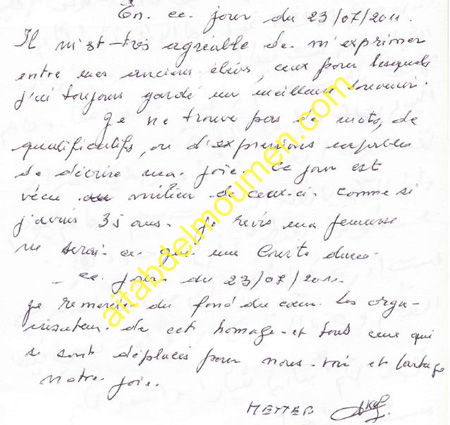 En ce jour du 23/07/2011.
Il m'est très agréable de m'exprimer
entre mes anciens élèves, ceux pour lesquels
j'ai toujours gardé un meilleur souvenir.
Je ne trouve pas de mots, de
qualificatifs, ou d'expressions capables
de décrire ma joie. Ce jour est
vécu au milieu de ceux-ci. Comme si
j'avais 35 ans. Je revis ma jeunesse
ne serai-ce que une courte durée
ce jour du 23/07/2011.
Je remercie du fond du cœur les orga-
nisateurs de cet homage et tous ceux qui
se sont déplacés pour nous voir et partage
notre joie.
METTEB
aittabdelmoumen.com